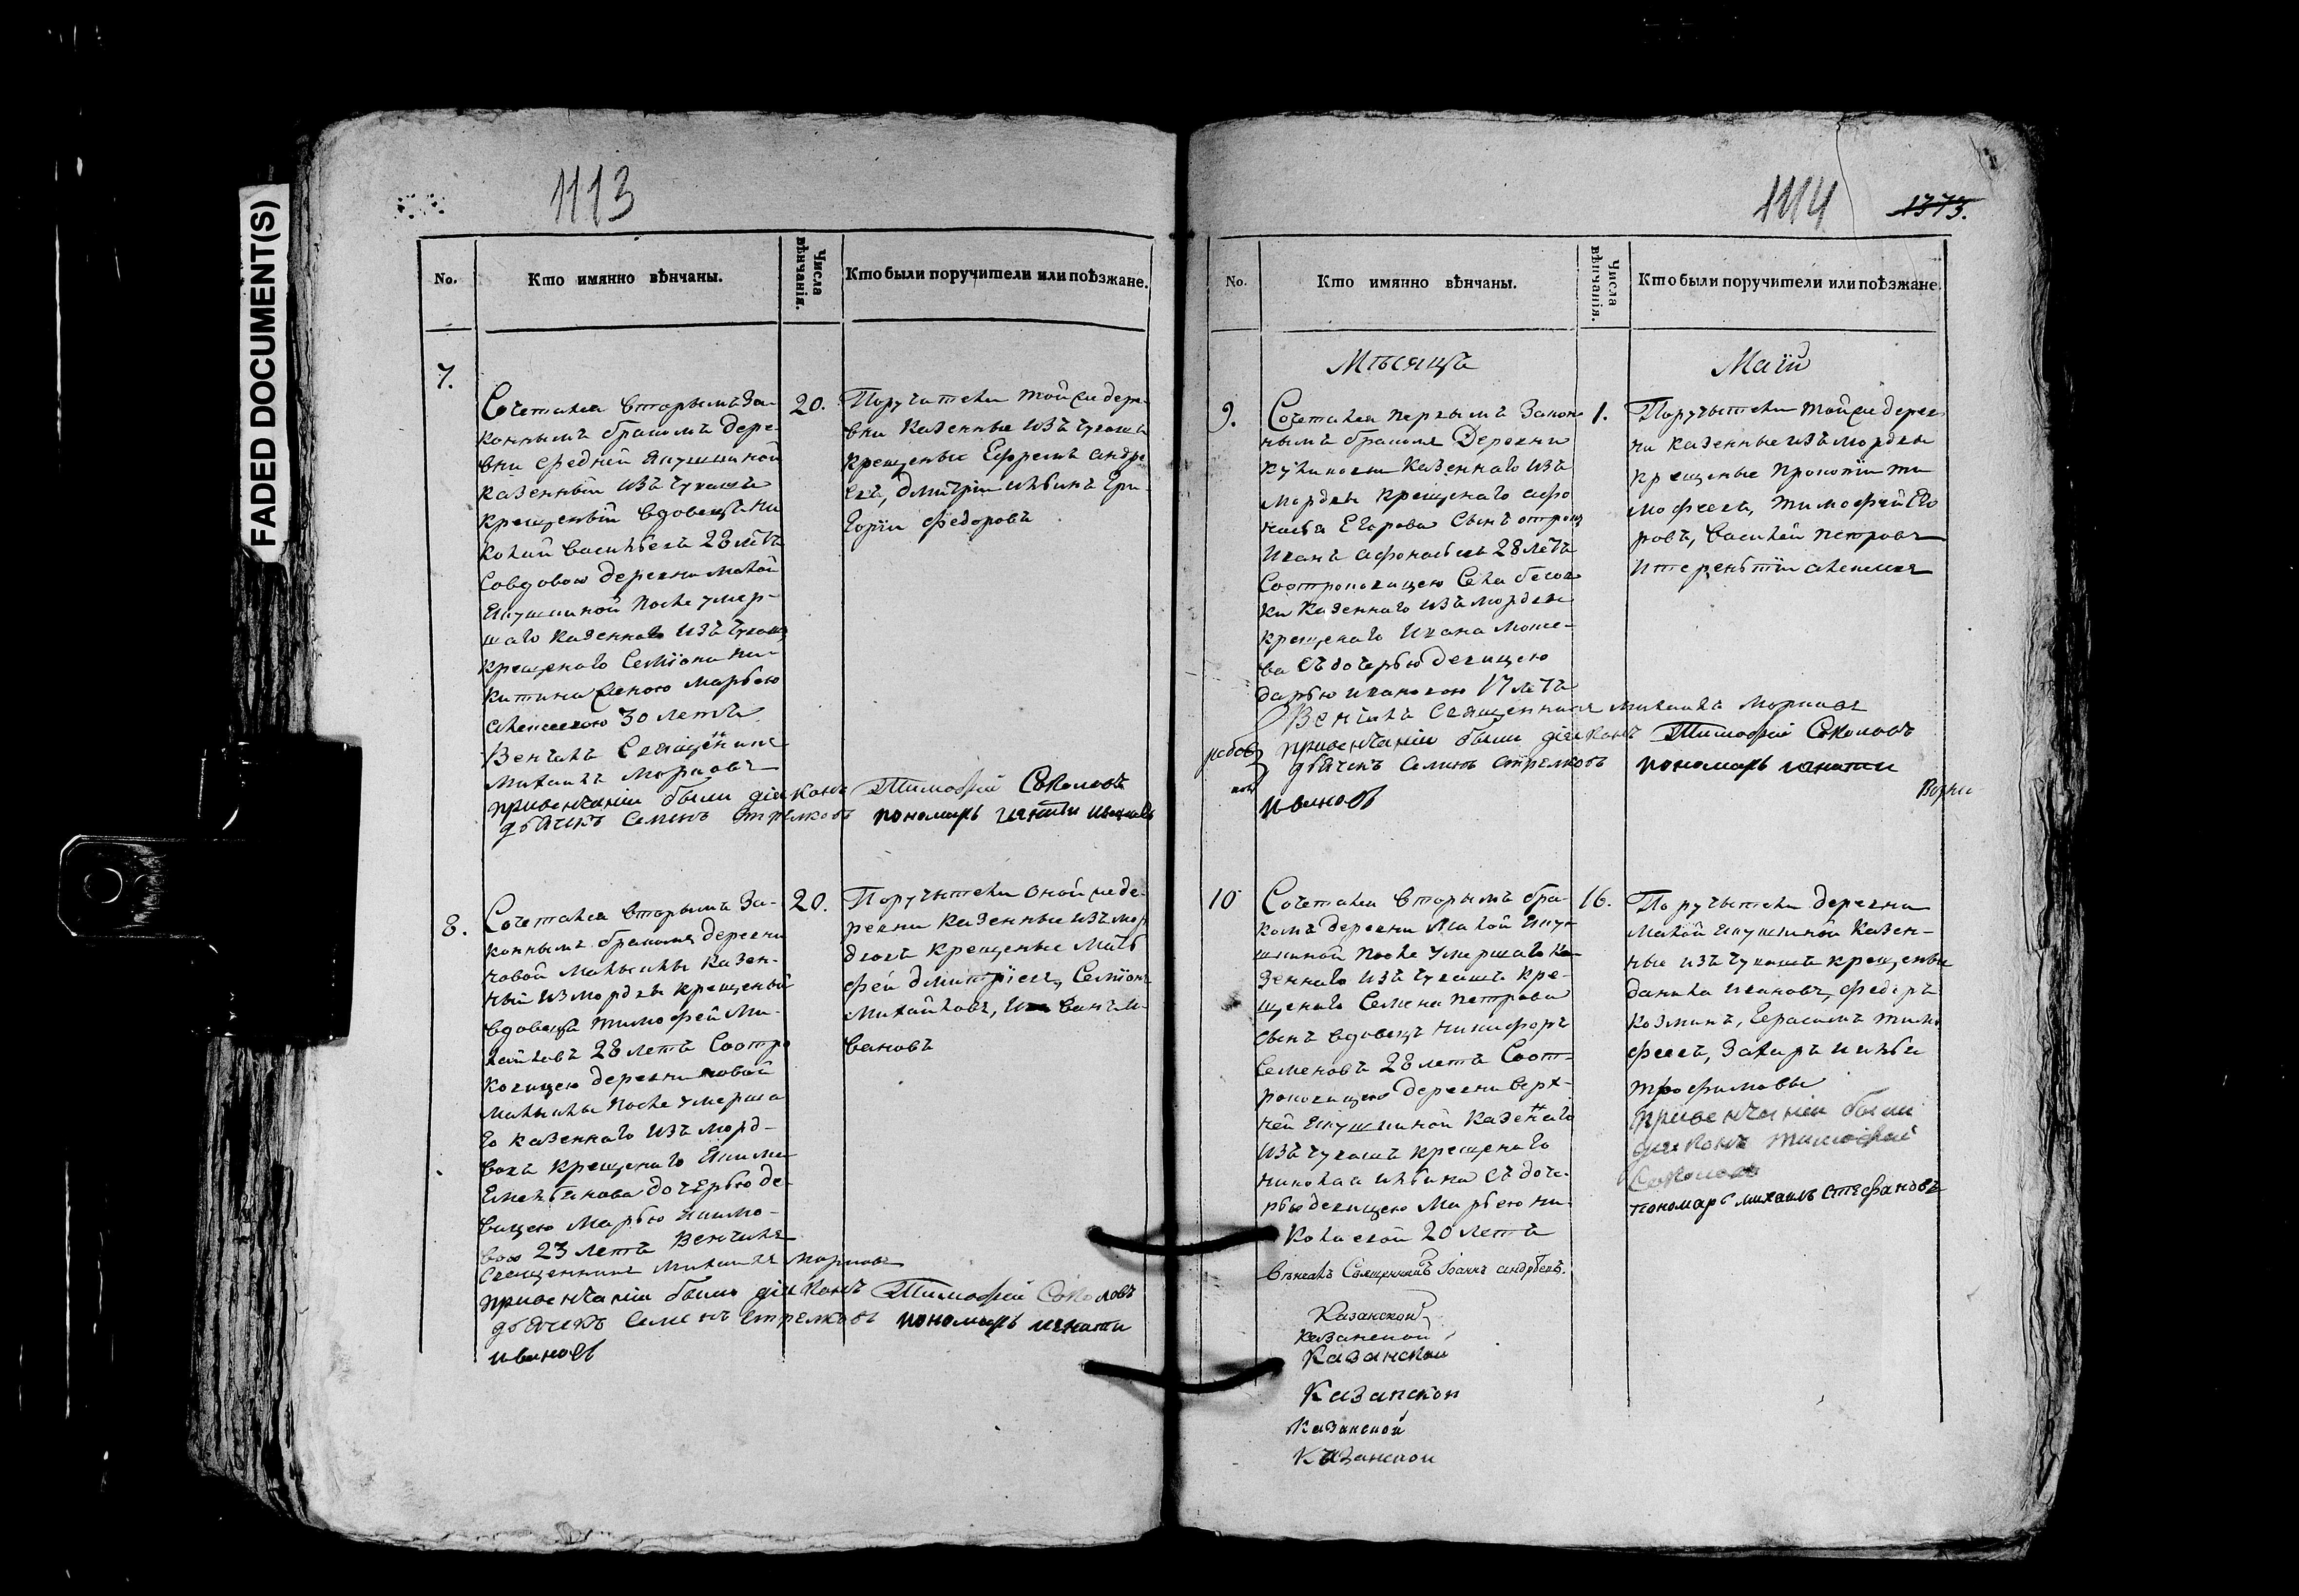 FADED DOCUMENT(S)
1113
No.
Кто имянно вѣнчаны.
Числа вѣнчанія.
Кто были поручители или поѣзжане.
7.
Сочетался вторымъ за-
коннымъ бракомъ дере-
вни средней Якушкиной
казенный изъ чувашъ
крещеный вдовецъ Ни
колай Васильевъ 28 летъ
Совдовою деревни малой
Якушкиной после умер-
шаго казеннаго изъ чувашъ
крещенаго Семіона Ни-
китина женою Марьею
Алексеевою 30 летъ
Венчалъ Священникъ
Михаилъ
привенчаніи были діаконъ Тимофей Соколовъ
дьячекъ Семенъ Стрелковъ пономарь игнати ивановъ
20.
Поручители той же дере-
вни казенные изъ чувашъ
крещеные Ефремъ Андре
евъ, Дмитрій Ильинъ Гри-
горій Федоровъ
8.
Сочетался вторымъ за-
коннымъ бракомъ деревни
новой казен-
ный из мордвы крещеный
вдовецъ Тимофей Ми-
хайловъ 28 летъ Соотро
ковицею деревни новой
после умерша
го казеннаго изъ морд-
вовъ крещенаго
дочерью де-
вицею Марью
вою 23 летъ Венчалъ
Священникъ Михаилъ
привенчаніи были діаконъ Тимофей Соколовъ
дьячекъ Семенъ Стрелковъ пономарь игнати
ивановъ
20.
Поручители оной же де-
ревни казенные изъ мор
двовъ крещеные Мать
фей Дмитріевъ, Семіонъ
Михайловъ, Иванъ И-
вановъ
1114
1373.
No.
Кто имянно вѣнчаны.
Числа вѣнчанія.
Кто были поручители или поѣзжане.
Мѣсяца
Маій
9.
Сочетался первымъ Закон
нымъ бракомъ Деревни
казеннаго изъ
Мордвы крещенаго Афо
насья Егорова сынъ отрокъ
Иванъ Афонасьевъ 28 летъ
Соотроковицею Села
казеннаго изъ мордвы
крещенаго Ивана
ва съ дочерью девицею
дарью ивановою 17 летъ
Венчалъ Священникъ Михаилъ
привенчаніи были діаконъ Тимофей Соколовъ
дьячекъ Семенъ Стрелковъ пономарь игнати
ивановъ
1.
Поручители той же дерев
ни казенные изъ мордвы
крещеные Прокопій Ти
мофеевъ, Тимофей Его
ровъ, Василей Петровъ
И Терентій Алексеевъ
10
Сочетался вторымъ бра-
комъ деревни Малой Якуш
шкиной после умершаго ка
зеннаго изъ чувашъ кре-
щенаго Семена Петрова
сынъ вдовецъ Никифоръ
Семеновъ 28 летъ Соот-
роковицею деревни Верх-
ней Якушкиной казеннаго
изъ чувашъ крещенаго
Николая Ильина съ доче-
рью девицею Марьею Ни-
колаевой 20 летъ
Венчалъ Священникъ Іоаннъ Андреевъ.
Казанской
Казанской
Казанской
Казанской
Казанской
Казанской
16.
Поручители деревни
Малой Якушкиной казен-
ные изъ чувашъ крещеные
Данила Ивановъ, Федоръ
Козминъ, Герасимъ Тимо
феевъ, Захаръ и Илья
Трофимовы
привенчаніи были
діаконъ тимофей
Соколовъ
пономарь михаилъ Стефановъ